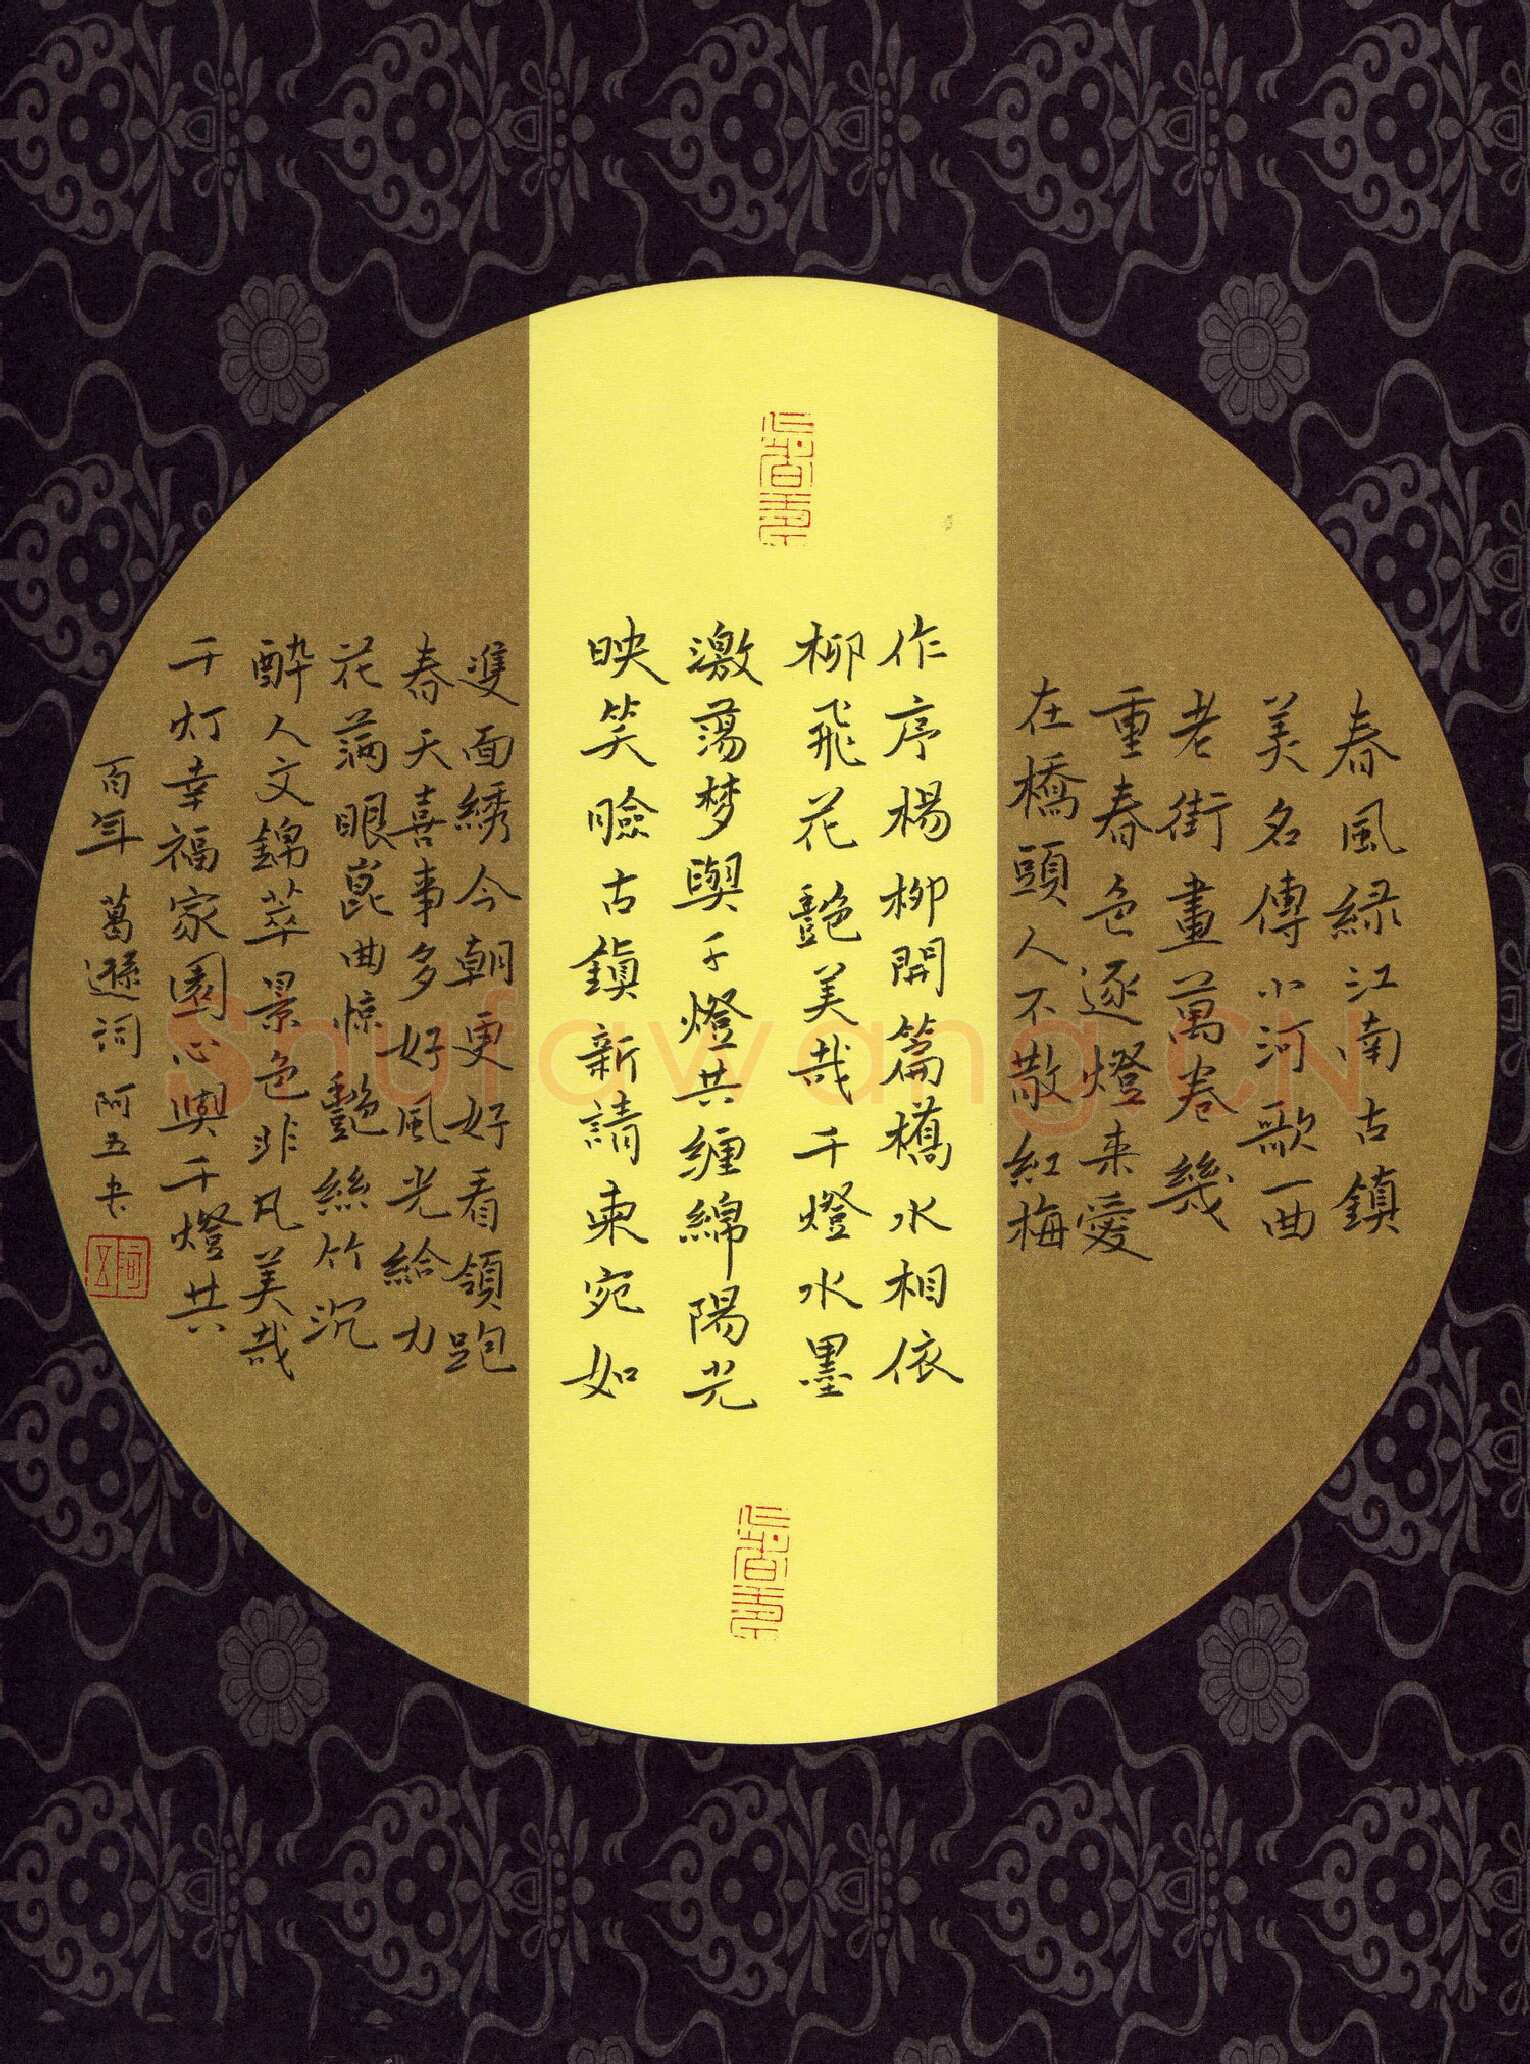 春風緑江南古鎮
美名傳小河歌一曲
老街畫萬卷幾
重春色逐燈来愛
在橋頭人不散紅梅
作序楊柳開篇橋水相依
柳飛花艷美哉千燈水墨
激蕩梦與千燈共缠綿陽光
映笑臉古鎮新請柬宛如
雙面綉今朝更好看領跑
春天喜事多好風光給力
花满眼崑曲惊艷絲竹沉
醉人文錦萃景色非凡美哉
千灯幸福家園心與千燈共
百年 葛遜词 阿五书
Shufawang.CN